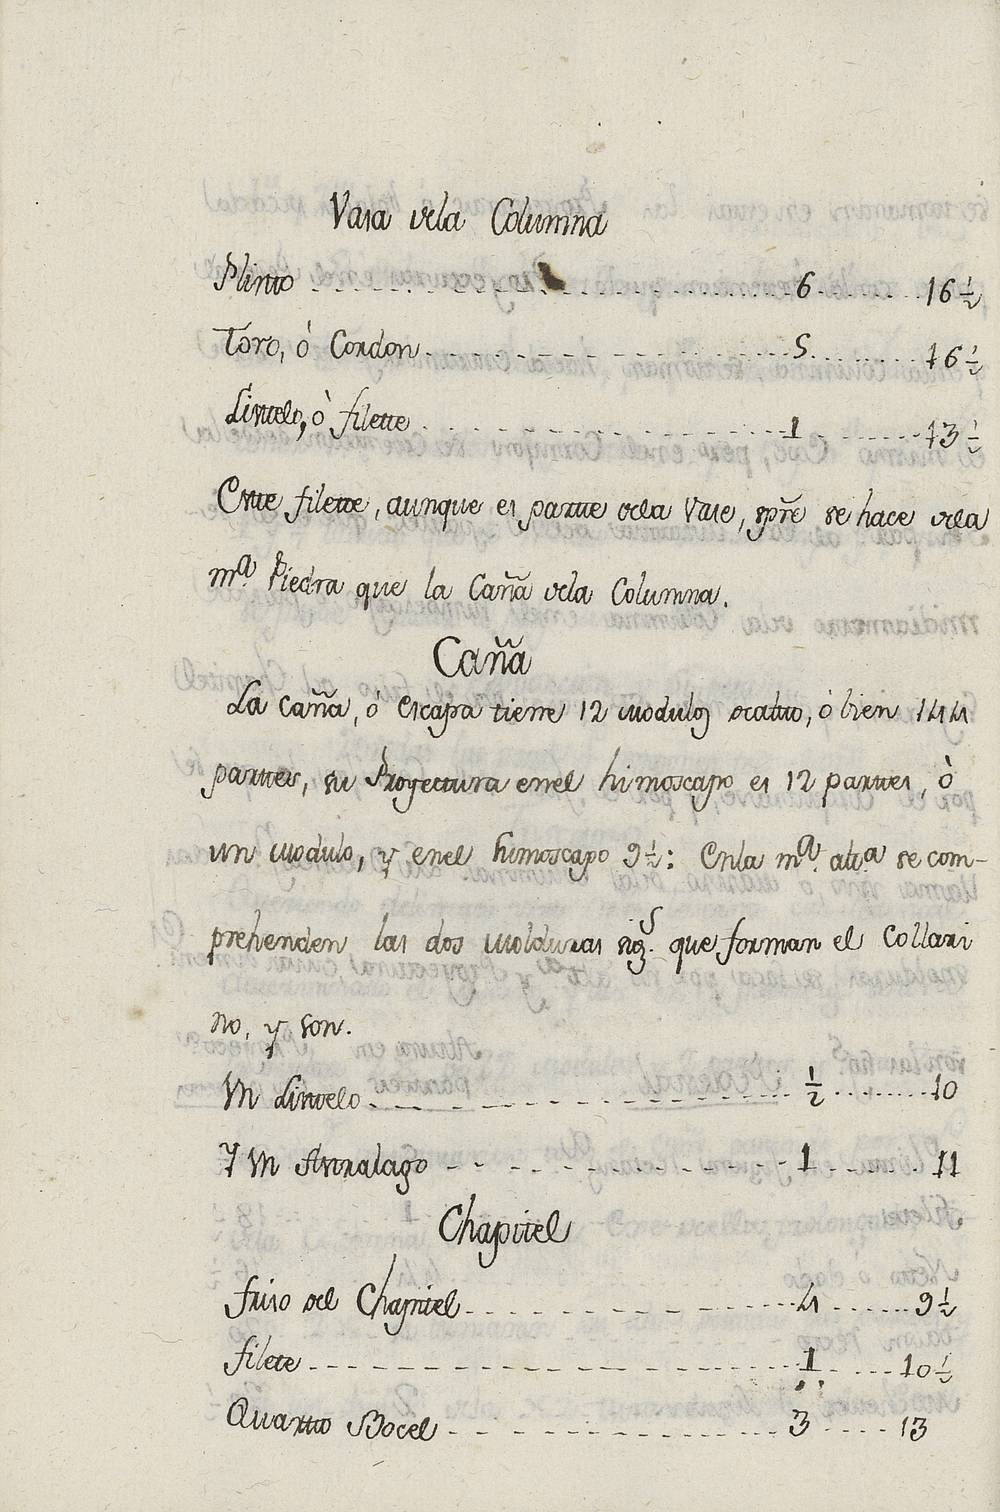 Vasa dela Columna
Plinto 6 16 1/2
Toro, ò Cordon 5 16 1/2
Listelo, ò filette 1 13 1/2
Este filette, aunque es parte dela Vase, spre se hace dela
ma. Piedra que la Caña dela Columna.
Caña
La caña, ò escapa tiene 12 modulos de alto, ò bien 144
partes, su Proyectura enel himoscapo es 12 partes, ò
un modulo, y enel himoscapo 9 1/2: Enla ma. alta se com-
prehenden las dos molduras sigs. que forman el Collari
no, y son.
Un Listelo 1/2 10
Y un Astralago 1 11
Chapitel
friso del Chapitel 4 9 1/2
filete 1 10 1/2
Quarto Bocel 3 13